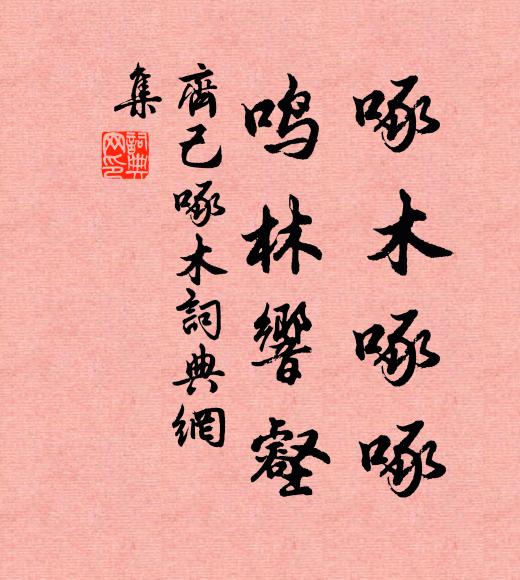 啄木啄啄
鸣林響壑
齊己啄木詞典網
集
詞典
网印